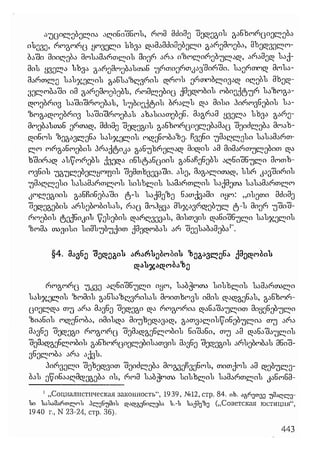 აუცილებელია აღინიშნოს, რომ მძიმე შედეგის განხორციელება
ისევე, როგორც ყოველი სხვა დამამძიმებელი გარემოება, მხედველო-
ბაში მიიღება მოსამართლის მიერ არა იზოლირებულად, არამედ საქ-
მის ყველა სხვა გარემოებასთან ურთიერთკავშირში. საერთოდ მოსა-
მართლე სასჯელის განსაზღვრის დროს ერთობლივად იღებს მხედ-
ველობაში იმ გარემოებებს, რომლებიც ქმედობის ობიექტურ საზოგა-
დოებრივ საშიშროებას, სუბიექტის ბრალს და მისი პიროვნების სა-
ზოგადოებრივ საშიშროებას ახასიათებენ. მაგრამ ყველა სხვა გარე-
მოებასთან ერთად, მძიმე შედეგის განხორციელებამაც შეიძლება მოახ-
დინოს ზეგავლენა სასჯელის ოდენობაზე. ჩვენი უმაღლესი სასამართ-
ლო ორგანოების პრაქტიკა განუხრელად მიდის ამ მიმართულებით და
ხშირად ასწორებს ქვედა ინსტანციის განაჩენებს აღნიშნული მოთხ-
ოვნის უგულებელყოფის შემთხვევაში. ასე, მაგალითად, სსრ კავშირის
უმაღლესი სასამართლოს სისხლის სამართლის საქმეთა სასამართლო
კოლეგიის განჩინებაში ტ-ს საქმეზე ნათქვამი იყო: „ისეთი მძიმე
შედეგების არსებობისას, რაც მოჰყვა მსჯავრდებულ ტ-ს მიერ უშიშ-
როების ტექნიკის წესების დარღვევას, მისთვის დანიშნული სასჯელის
ზომა თავისი სიმსუბუქით ქმედობას არ შეესაბამება¹".
§4. მავნე შედეგის არარსებობის ზეგავლენა ქმედობის
დასჯადობაზე
როგორც უკვე აღნიშნული იყო, საბჭოთა სისხლის სამართალი
სასჯელის ზომის განსაზღვრისას მოითხოვს იმის დადგენას, განხორ-
ციელდა თუ არა მავნე შედეგი და როგორია დანაშაულით მიყენებული
ზიანის ოდენობა, იმისდა მიუხედავად, გათვალისწინებულია თუ არა
მავნე შედეგი როგორც შემადგენლობის ნიშანი, თუ ამ დანაშაულის
შემადგენლობის განხორციელებისათვის მავნე შედეგის არსებობას მნიშ-
ვნელობა არა აქვს.
პირველი შეხედვით შეიძლება მოგვეჩვენოს, თითქოს ამ დებულე-
ბას ეწინააღმდეგება ის, რომ საბჭოთა სისხლის სამართლის კანონმ-
¹ „Социалистическая законность", 1939, №12, стр. 84. იხ. აგრეთვე უმაღლე-
სი სასამართლოს პლენუმის დადგენილება ს.-ს საქმეზე („Советская юстиция",
1940 г., N 23-24, стр. 36).
443